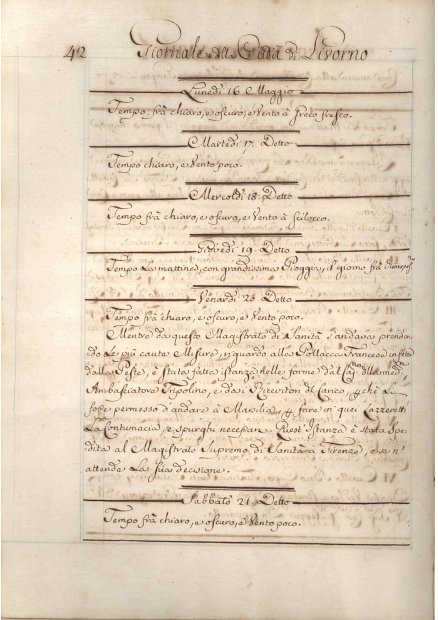 42 Giornale della Città di Livorno
Lunedi 16 Maggio
Tempo frà chiaro, e oscuro, e Vento à Greco fresco.
Martedi 17. Detto
Tempo chiaro, e Vento poco.
Mercoldi 18. Detto
Tempo frà chiaro, e oscuro, e Vento à Scilocco.
Giovedi 19. Detto
Tempo La mattina, con grandissima Pioggia, il giorno frà
Venardi 20 Detto
Tempo frà chiaro, e oscuro, e Vento poco.
Mentre da questo Magistrato di Sanità s'andava prenden
do Le più caute Misure, in guardo alla Pollacca Francese infetta
dalla Peste, è stata fatta istanza nelle forme dal
Ambasciatore Tripolino, e da Ricevitori di Carico, che Le
fosse permesso d'andare à Marsilia fare in quei Lazzeretti
La Contumacia, e spurghi Quest'Istanza è stata Spe
dita al Magistrato Supremo di Sanità à Firenze, e se n'
attende La sua decisione.
Sabbato 21. Detto
Tempo frà chiaro, e oscuro, e Vento poco.